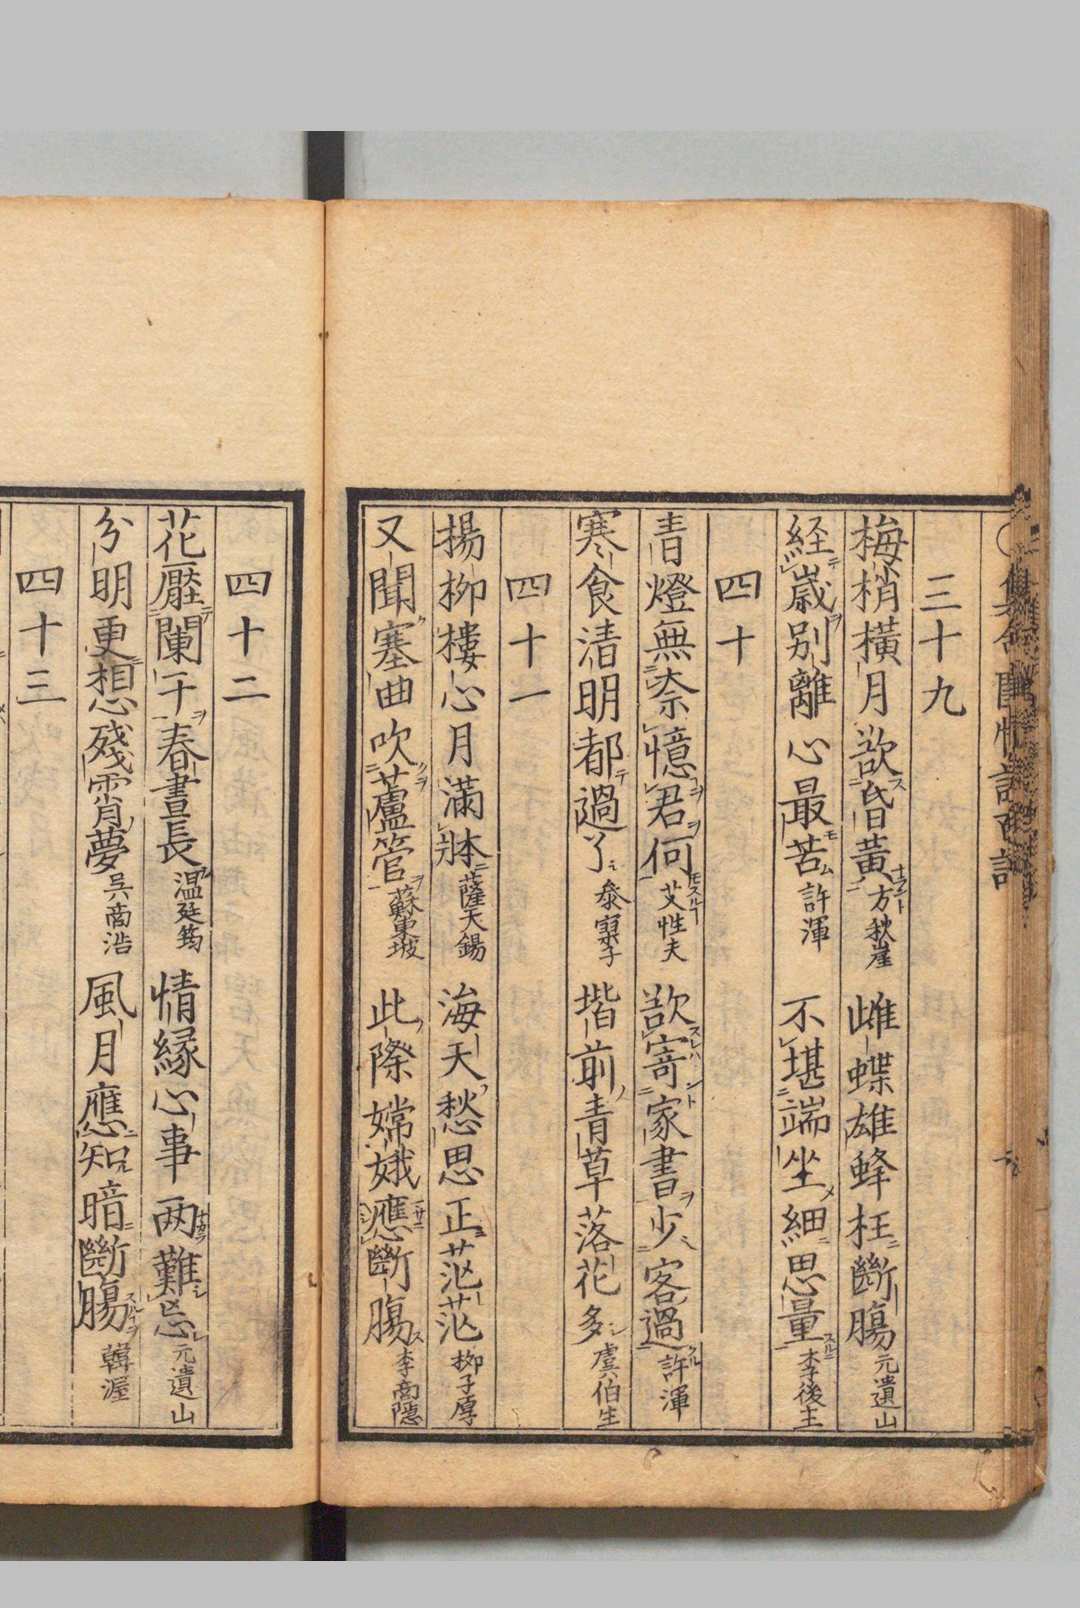 三十九
梅梢橫月欲昏黄 方秋崖 雌蝶雄蜂枉斷腸 元遺山
経歳別離心最苦 許渾 不堪端坐細思量 李後主
四十
青燈無柰憶君何 艾性夫 欲寄家書少客過 許渾
寒食清明都過了 泰寥子 堦前青草落花多 虞伯生
四十一
揚柳樓心月滿牀 薩天錫 海天愁思正茫茫 柳子厚
又聞塞曲吹蘆管 蘇東坡 此際嫦娥應斷腸 李商隱
四十二
花壓闌干春晝長 温廷筠 情緣心事兩難忘 元遺山
分明更想殘霄夢 吴商浩 風月應知暗斷腸 韓渥
四十三